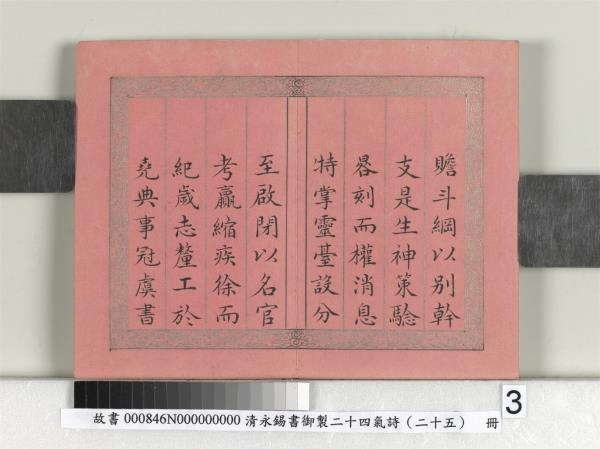 瞻斗綱以別幹
支是生神策驗
晷刻而權消息
特掌靈臺設分
至啟閉以名官
考贏縮疾徐而
紀歲志釐工於
堯典事冠虞書
3
故書 000846N000000000 清永錫書御製二十四氣詩(二十五) 冊